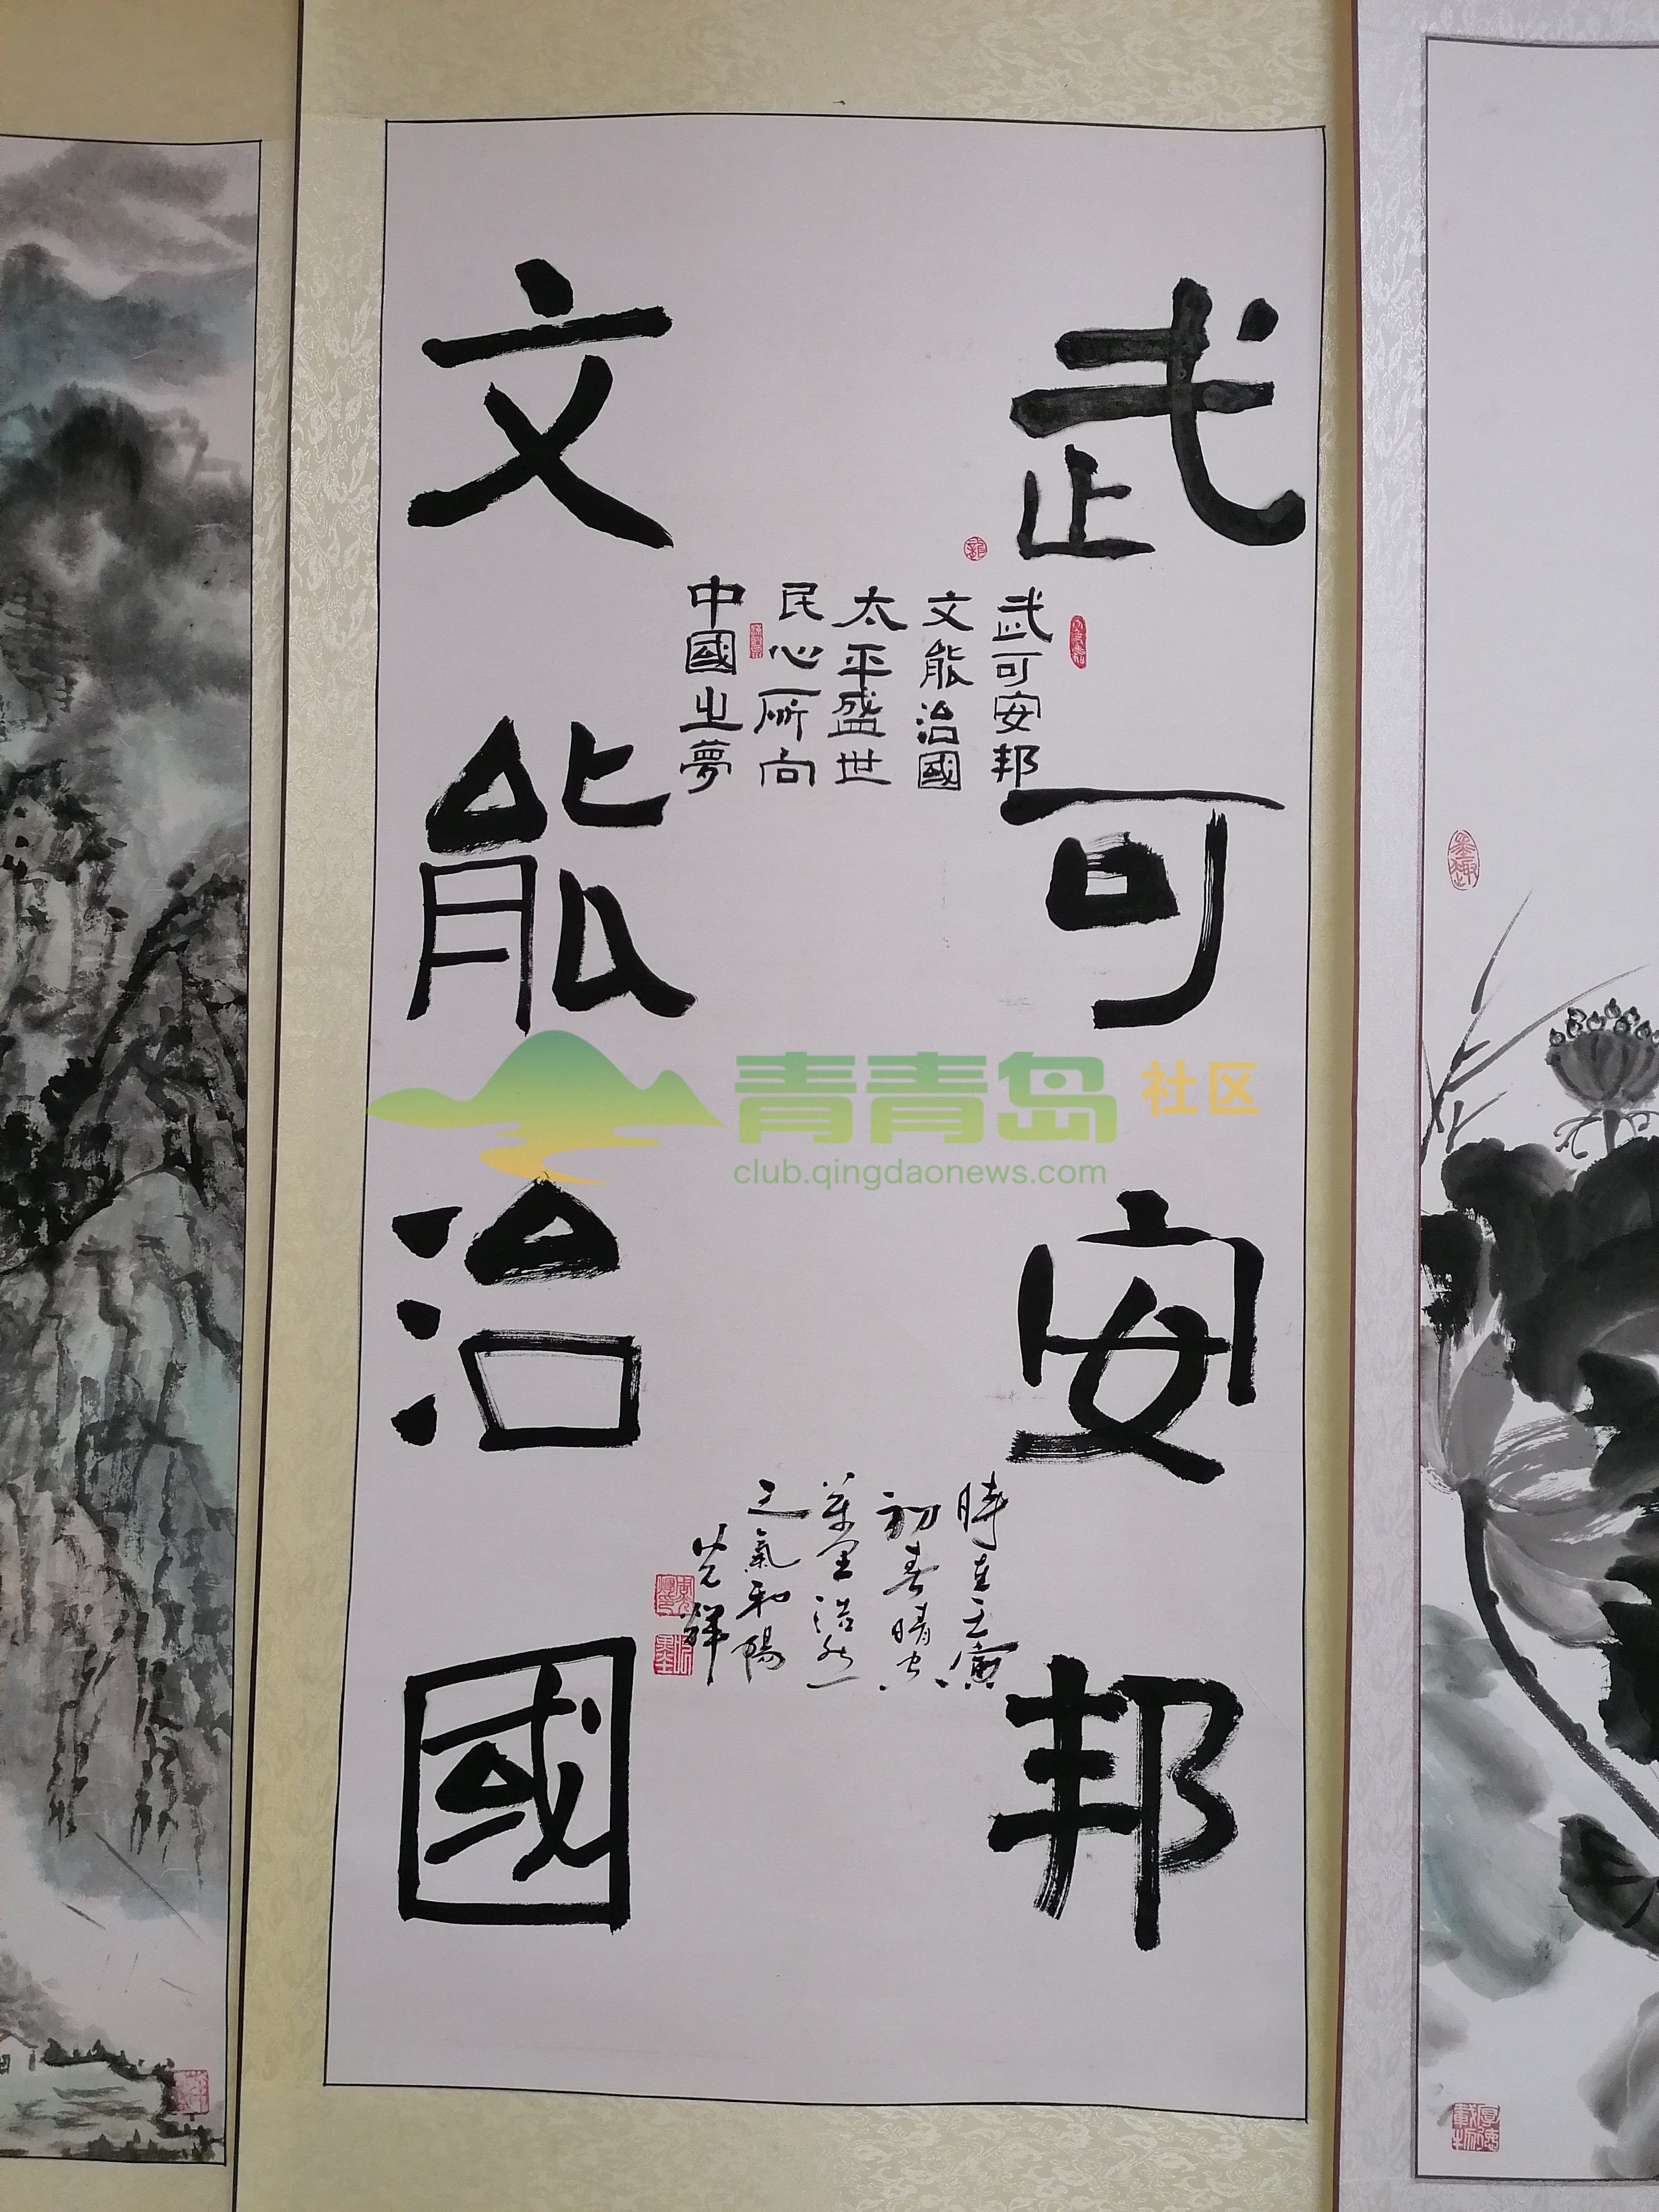 武可安邦
文能治國
武可安邦
文能治國
太平盛世
民心所向
中國之夢
時在壬寅
初春晴空
萬里浩然
之氣和陽
光輝
青青岛 社区
club.qingdaonews.com
墨趣
厚德載物